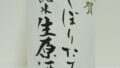 賀
しぼりたて
生原酒